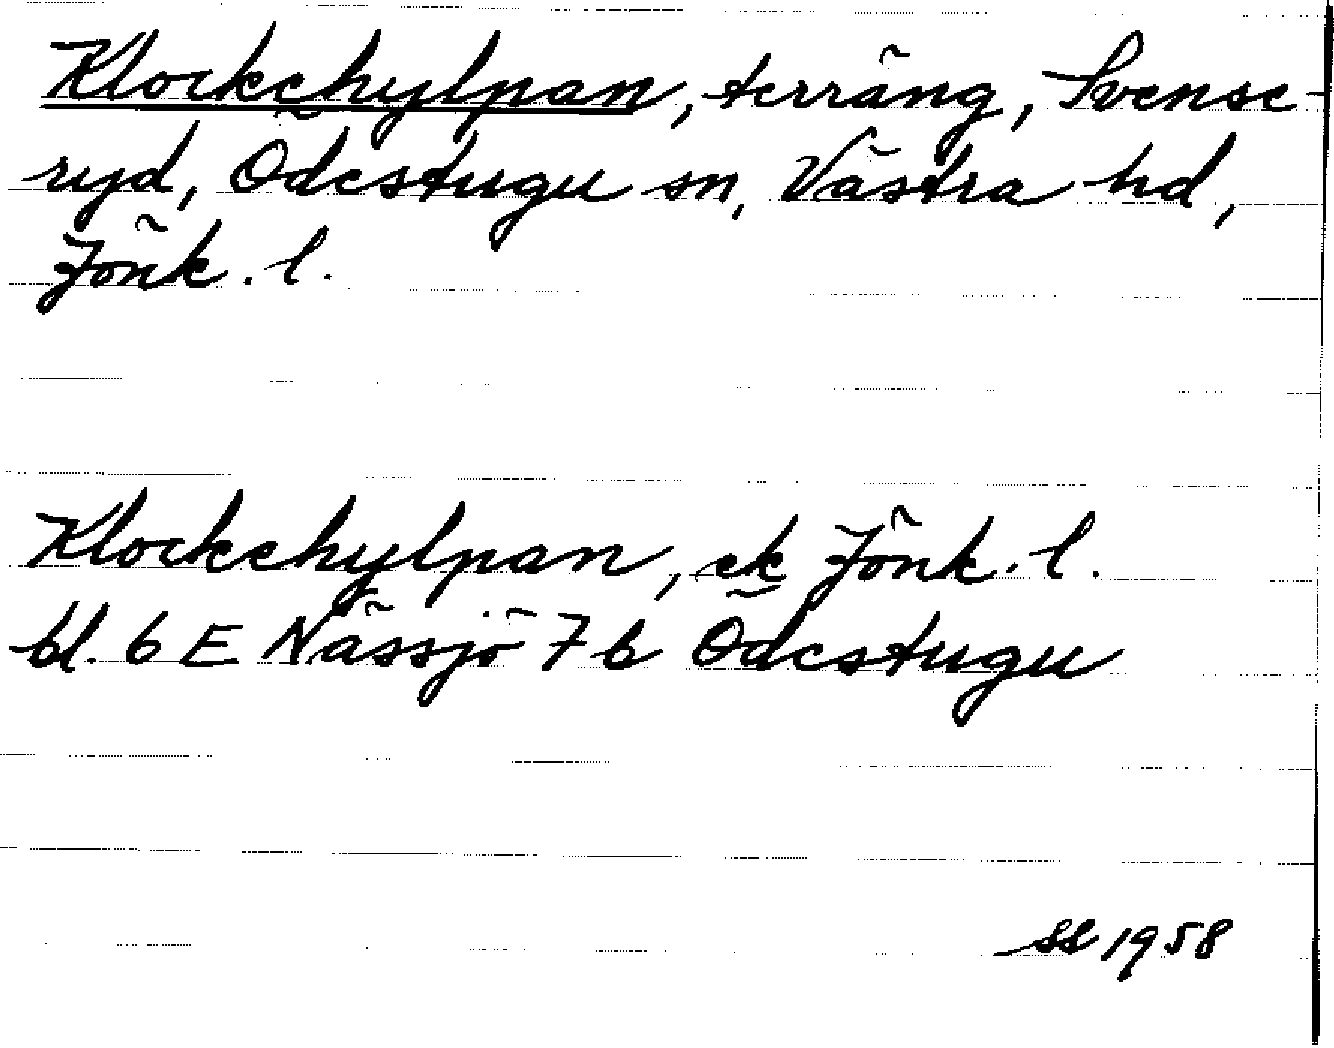 Klockehylpan, terräng, Svense-
ryd, Ödestugu sn, Västra hd,
Jönk. l.
Klockehylpan, ek Jönk. l.
bl. 6 E Nässjö 7 b Ödestugu
SS 1958